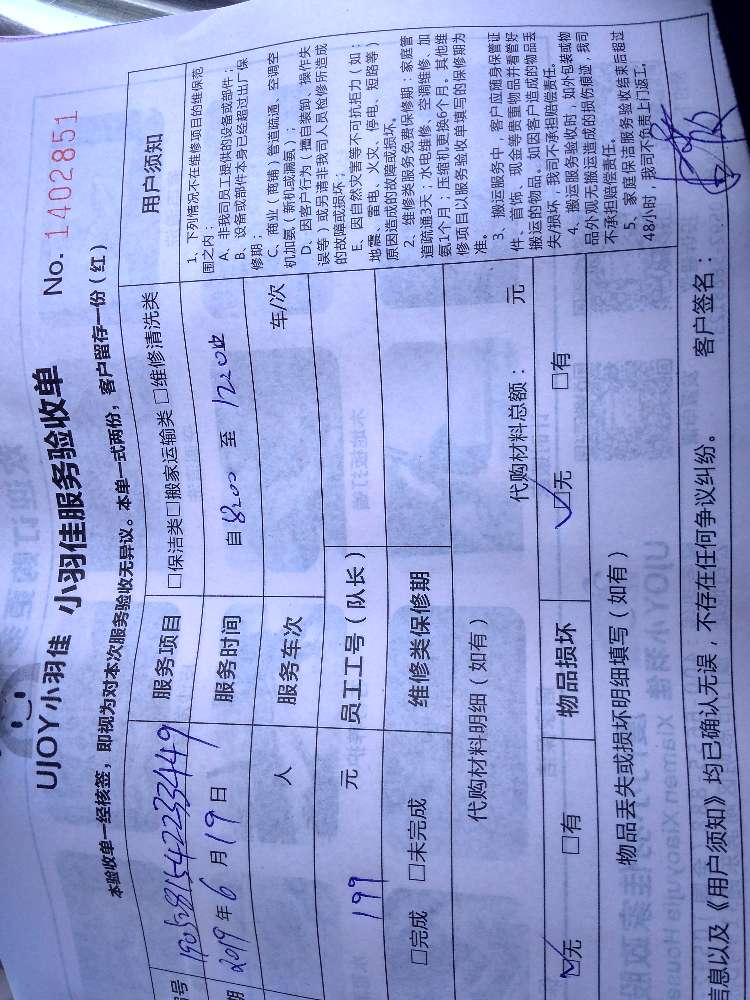 UJOY小羽佳 小羽佳服务验收单 No. 1402851
本验收单一经核签，即视为对本次服务验收无异议。本单一式两份，客户留存一份（红）
号 1905281542233449 服务项目 □保洁类□搬家运输类 □维修清洗类 用户须知
期 2019年6月19日 服务时间 自 8:00 至 12:00
人 服务车次 车/次
199 元 员工工号（队长）
□完成 □未完成 维修类保修期
代购材料明细（如有） 代购材料总额： 元
☑无 □有 物品损坏 ☑无 □有
物品丢失或损坏明细填写（如有）
1、下列情况不在维修项目的维保范
围之内：
A、非我司员工提供的设备或部件；
B、设备或部件本身已经超过出厂保
修期；
C、商业（商铺）管道疏通、空调空
机加氨（新机或漏氨）；
D、因客户行为（擅自装卸、操作失
误等）或另请非我司人员检修所造成
的故障或损坏；
E、因自然灾害等不可抗拒力（如：
地震、雷电、火灾、停电、短路等）
原因造成的故障或损坏。
2、维修类服务免费保修期：家庭管
道疏通3天；水电维修、空调维修、加
氨1个月；压缩机更换6个月。其他维
修项目以服务验收单填写的保修期为
准。
3、搬运服务中，客户应随身保管证
件、首饰、现金等贵重物品并看管好
搬运的物品。如因客户造成的物品丢
失/损坏，我司不承担赔偿责任。
4、搬运服务验收时，如外包装或物
品外观无搬运造成的损伤痕迹，我司
不承担赔偿责任。
5、家庭保洁服务验收结束后超过
48小时，我司不负责上门返工。
信息以及《用户须知》均已确认无误，不存在任何争议纠纷。 客户签名：